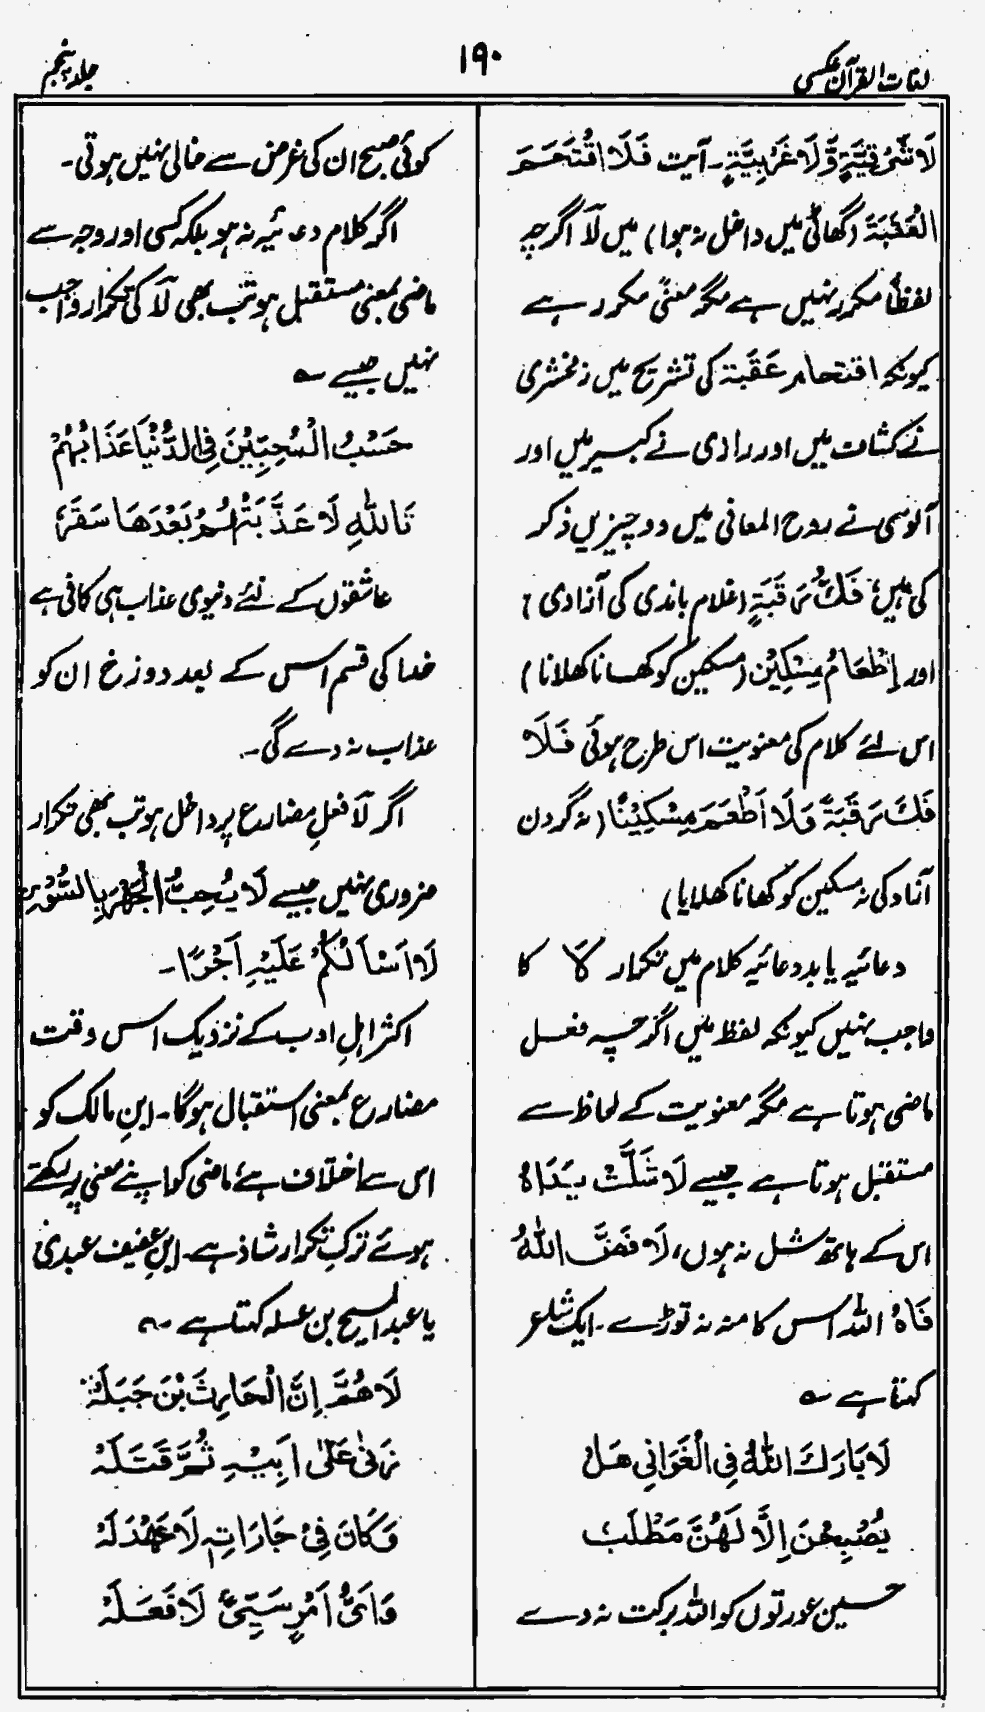 لغات القرآن عکسی
۱۹۰
جلد پنجم
لَا شَرْقِيَّةٍ وَّلَا غَرْبِيَّةٍ۔ آیت فَلَا اقْتَحَمَ
الْعَقَبَةَ (گھاٹی میں داخل نہ ہوا) میں لَا اگرچہ
لفظاً مکرر نہیں ہے مگر معنًی مکرر ہے
کیونکہ اقتحام عَقَبَة کی تشریح میں زمخشری
نے کشاف میں اور رازی نے کبیر میں اور
آلوسی نے روح المعانی میں دو چیزیں ذکر
کی ہیں؛ فَكُّ رَقَبَةٍ (غلام باندی کی آزادی)
اور إِطْعَامُ مِسْكِيْن (مسکین کو کھانا کھلانا)
اس لئے کلام کی معنویت اس طرح ہوئی فَلَا
فَكَّ رَقَبَةً وَلَا اَطْعَمَ مِسْكِيْنًا (نہ گردن
آزاد کی نہ مسکین کو کھانا کھلایا)
دعائیہ یا بددعائیہ کلام میں تکرار لَا کا
واجب نہیں کیونکہ لفظ میں اگرچہ فعل
ماضی ہوتا ہے مگر معنویت کے لحاظ سے
مستقبل ہوتا ہے جیسے لَا شَلَّتْ يَدَاهُ
اس کے ہاتھ شل نہ ہوں، لَا فَضَّ اللّٰهُ
فَاهُ اللہ اس کا منہ نہ توڑے۔ ایک شاعر
کہتا ہے ؎
لَا بَارَكَ اللّٰهُ فِي الْغَوَانِي هَلْ
يُصْبِحْنَ إِلَّا لَهُنَّ مَطْلَبٗ
حسین عورتوں کو اللہ برکت نہ دے
کوئی صبح ان کی غرض سے خالی نہیں ہوتی۔
اگر کلام دعائیہ نہ ہو بلکہ کسی اور وجہ سے
ماضی بمعنی مستقبل ہو تب بھی لَا کی تکرار واجب
نہیں جیسے ؎
حَسْبُ الْمُحِبِّيْنَ فِي الدُّنْيَا عَذَابُهُمْ
تَاللّٰهِ لَا عَذَّبَتْهُمْ بَعْدَهَا سَقَرٗ
عاشقوں کے لئے دنیوی عذاب ہی کافی ہے
خدا کی قسم اس کے بعد دوزخ ان کو
عذاب نہ دے گی۔
اگر لَا فعلِ مضارع پر داخل ہو تب بھی تکرار
ضروری نہیں جیسے لَا يُحِبُّ الْجَهْرَ بِالسُّوْءِ
لَا اَسْاَلُكُمْ عَلَيْهِ اَجْرًا۔
اکثر اہلِ ادب کے نزدیک اس وقت
مضارع بمعنی استقبال ہوگا۔ ابنِ مالک کو
اس سے اختلاف ہے، ماضی کو اپنے معنی پر رکھتے
ہوئے ترکِ تکرار شاذ ہے۔ ابنِ عفیف عبدی
یا عبدالمسیح بن عسلہ کہتا ہے ؎
لَا هُمَّ إِنَّ الْحَارِثَ بْنَ جَبَلَهْ
زَنٰى عَلٰى اَبِيْهِ ثُمَّ قَتَلَهْ
وَكَانَ فِيْ جَارَاتِهٖ لَا عَهْدَ لَهْ
وَاَىُّ اَمْرٍ سَيِّىءٍ لَا فَعَلَهْ